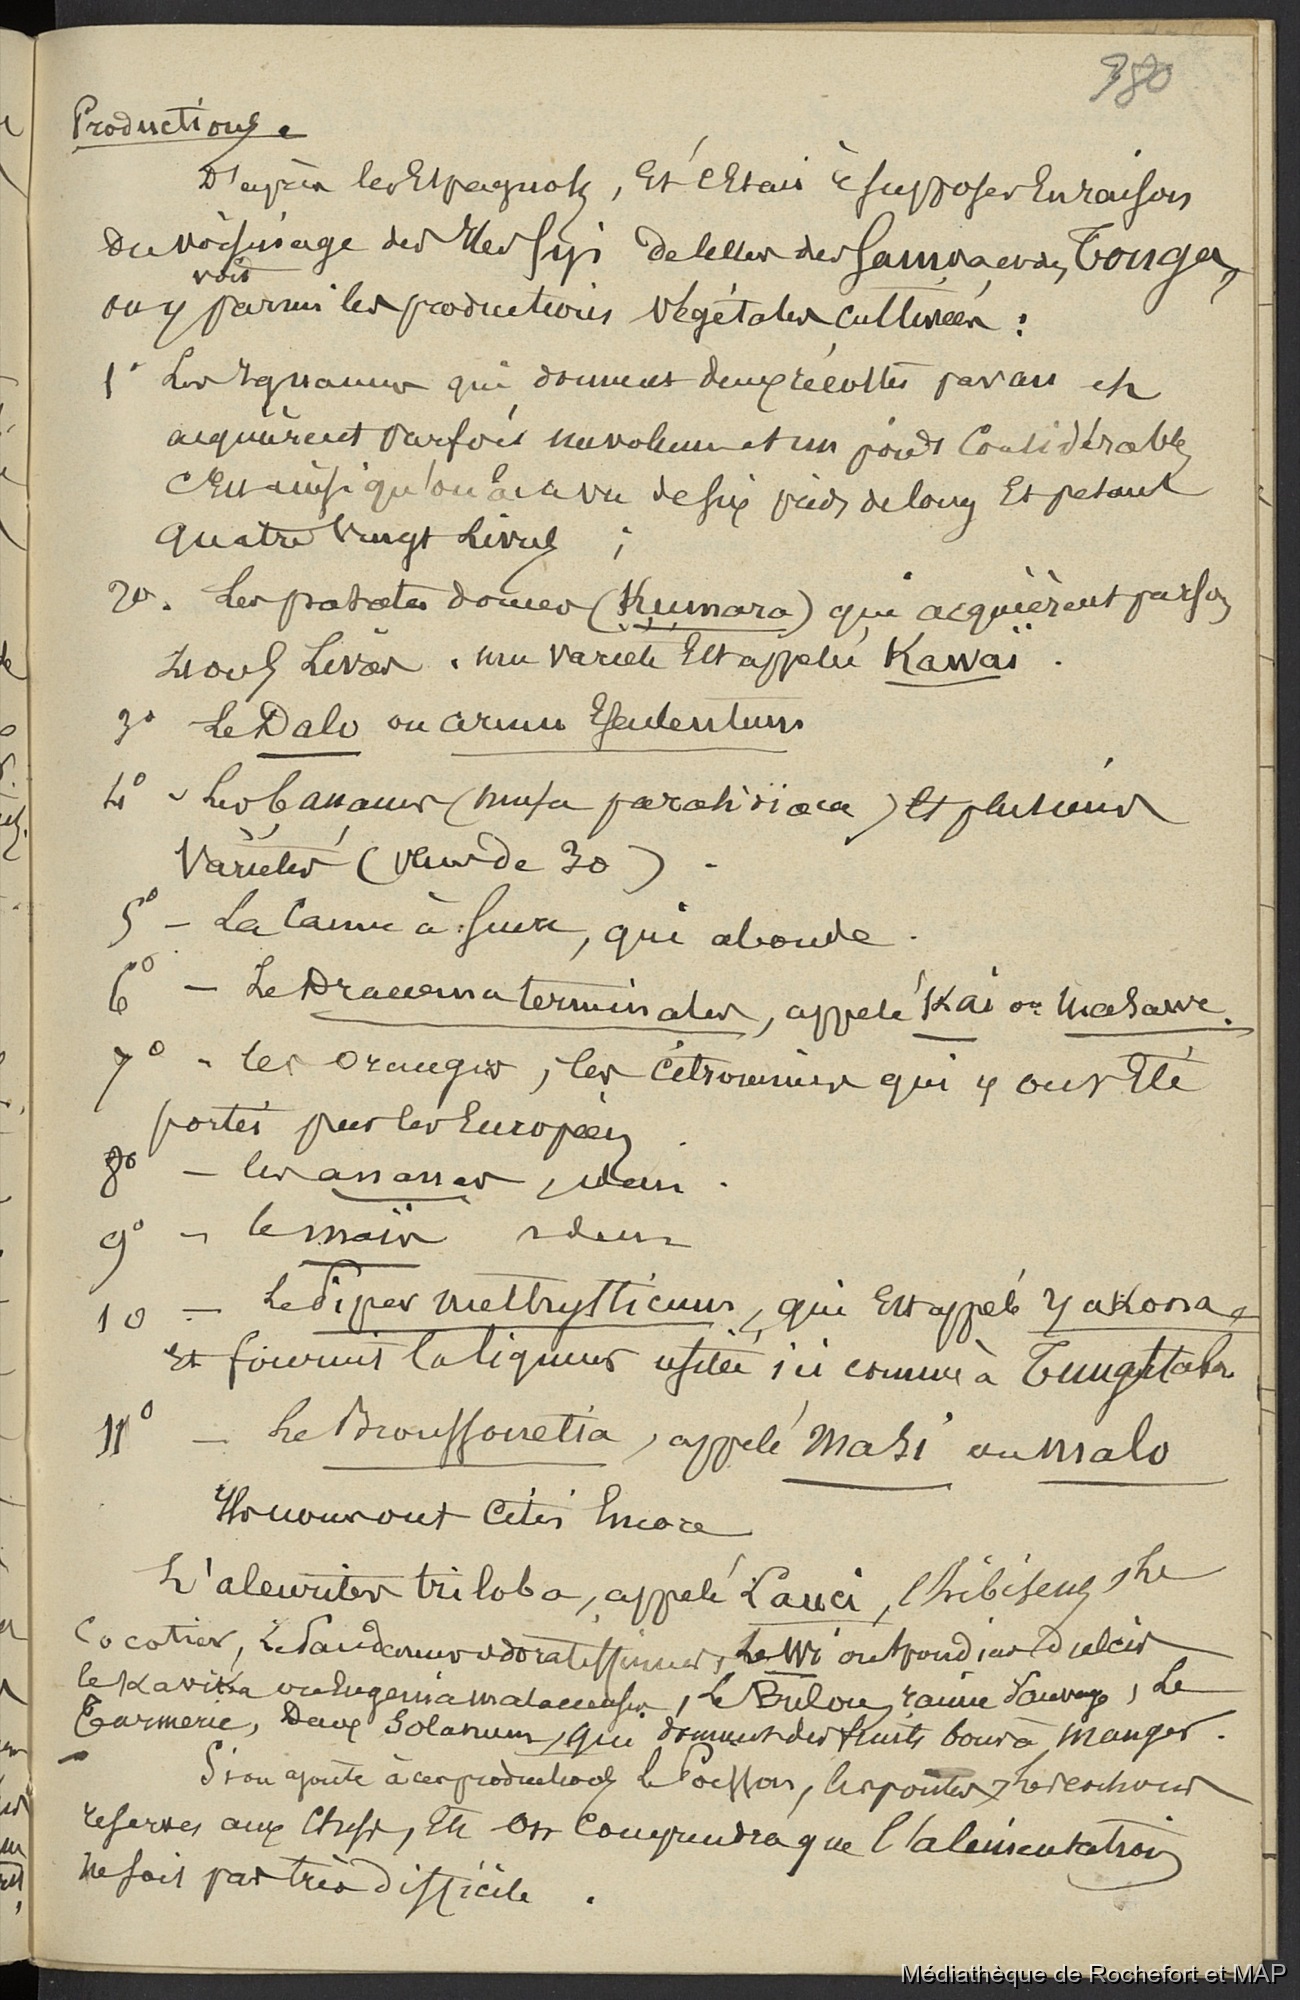 380
Productions.
D'après les Espagnols, Et c'Etait à supposer En raison
Du voisinage des Iles Fiji de celles des Samoa et des Tonga,
voit
on y parmi les productions végétales cultivées :
1° Les Ignames qui donnent deux récoltes par an et
acquièrent parfois un volume et un poids Considérable
C'Est ainsi qu'on en a vu de six pieds de long Et pesant
quatre vingt Livres ;
2°. Les patates douces (Kumara) qui acquièrent parfois
Livres . une variété Est appelée Kawaï .
3° Le Dalo ou arum Esculentum
4° - Les bananes (musa paradisiaca) Et plusieurs
Variétés (plus de 30) .
5° - La Canne à Sucre, qui abonde .
6° - Le Dracoena terminales, appelé Kai ou Masawe.
7° - les oranges, les Citronniers qui y ont Eté
portés par les Européens
8° - les ananas, idem .
9° - le maïs idem
10 - Le Piper methysticum, qui Est appelé Yakona,
Et fournit la liqueur usitée ici comme à Tungatabu
11° - Le Broussonetia, appelé Masi ou malo
Ils nous ont Cités Encore
L'aleurites triloba, appelé Lauci, l'hibiscus, Le
Cocotier, Le Pandanus odoratissimus, Le Wi ou Spondias Dulcis
le Kavika ou Eugenia malaccensis, Le Bulou, racine Sauvage, Le
Curmeric, Deux Solanum, qui donnent des fruits bons à manger .
Si on ajoute à ces productions le Poisson, les poules, les cochons
reservés aux Chefs, Etc On Comprendra que l'alimentation
ne soit pas très difficile .
Médiathèque de Rochefort et MAP